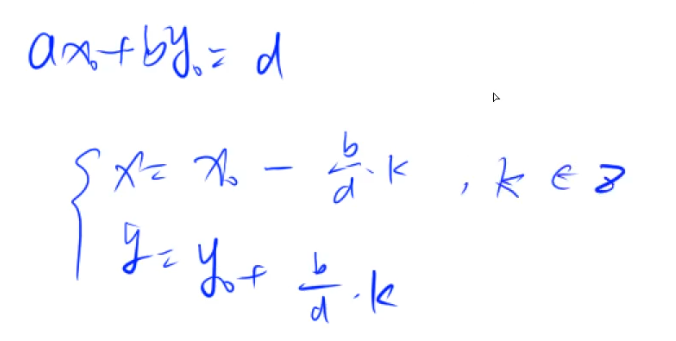 ax₀+by₀=d
x=x₀-b/d·k, k∈z
y=y₀+b/d·k